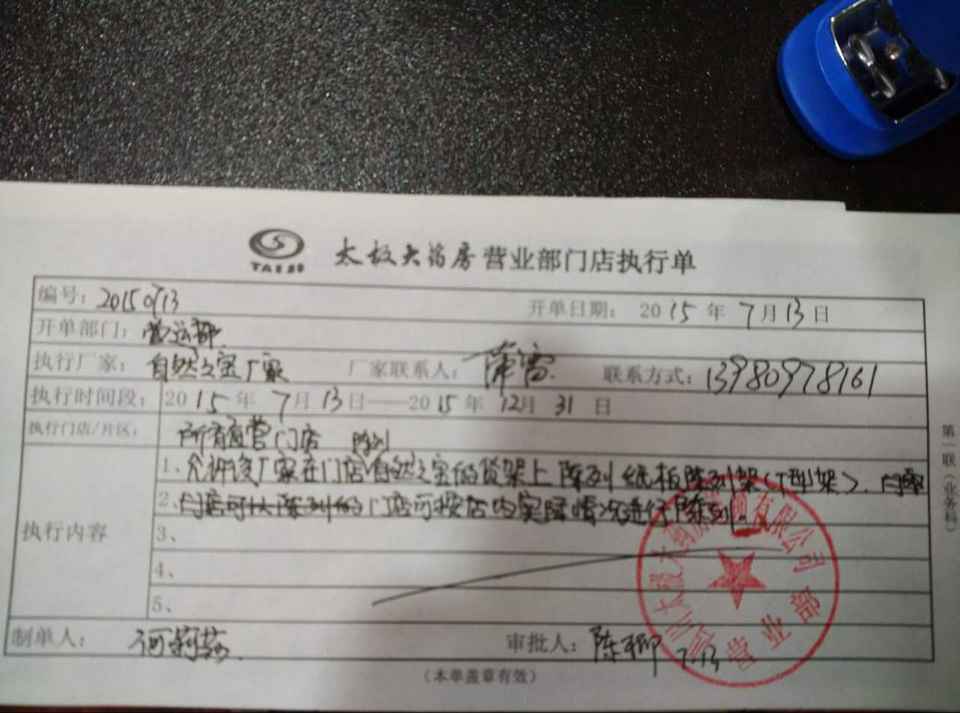 TAIJI 太极大药房营业部门店执行单
编号：20150713 开单日期：2015年7月13日
开单部门：营运部
执行厂家：自然之宝厂家 厂家联系人：蒲雪 联系方式：13980978161
执行时间段：2015年7月13日——2015年12月31日
执行门店/片区：所有直营门店
执行内容
1、允许该厂家在门店自然之宝的货架上陈列纸板陈列架（T型架）。
2、门店可按店内实际情况进行陈列。
3、
4、
5、
制单人： 审批人：陈柳 7.13
（本单盖章有效）
第一联（业务科）
太极大药房 有限公司
营业部